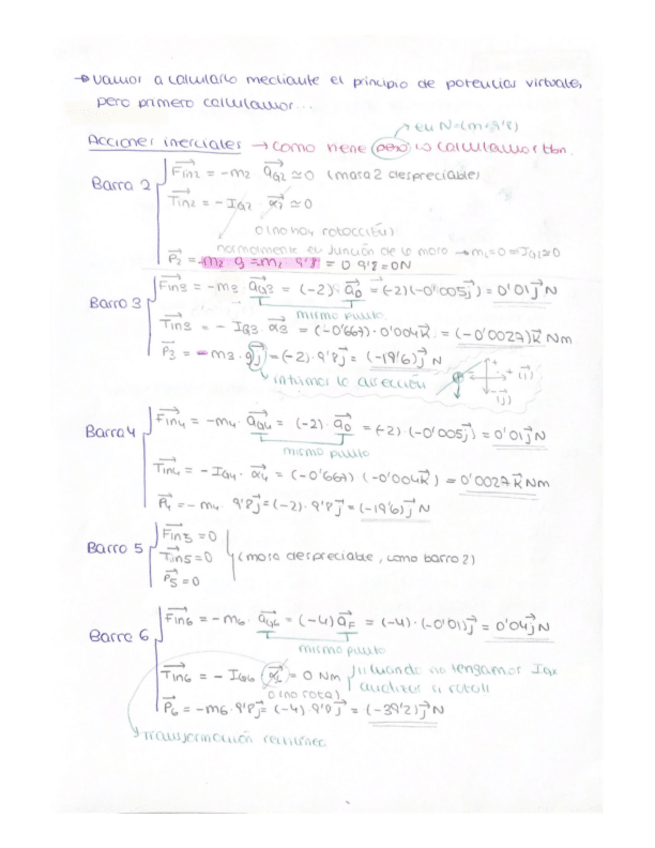 → Vamos a calcularlo mediante el principio de potencias virtuales,
pero primero calculamos...
→ en N=(m·9'8)
Acciones inerciales → como tiene peso lo calculamos tbn.
Barra 2
Fin2 = -m2 · aG2 ≃ 0 (masa 2 despreciable)
Tin2 = -IG2 · α2 ≃ 0
0 (no hay rotación)
normalmente en función de la masa → m2=0 ⇒ IG2≃0
P2 = -m2 · g = m2 · 9'8 = 0 · 9'8 = 0N
Barra 3
Fin3 = -m3 · aG3 = (-2) · aD = (-2)(-0'005j) = 0'01j N
mismo punto
Tin3 = -IG3 · α3 = (-0'667) · 0'004k = (-0'0027)k Nm
P3 = -m3 · gj = (-2) · 9'8j = (-19'6)j N
la dirección
+ (i)
- (j)
Barra 4
Fin4 = -m4 · aG4 = (-2) · aD = (-2) · (-0'005j) = 0'01j N
mismo punto
Tin4 = -IG4 · α4 = (-0'667) (-0'004k) = 0'0027k Nm
P4 = -m4 · 9'8j = (-2) · 9'8j = (-19'6)j N
Barra 5
Fin5 = 0
Tin5 = 0 (masa despreciable, como barra 2)
P5 = 0
Barra 6
Fin6 = -m6 · aG6 = (-4) aF = (-4) · (-0'01)j = 0'04j N
mismo punto
Tin6 = -IG6 · α6 = 0 Nm
¡¡Cuando no tengamos IG
analizar si rota!!
0 (no rota)
P6 = -m6 · 9'8j = (-4) · 9'8j = (-39'2)j N
Transformación rectilínea